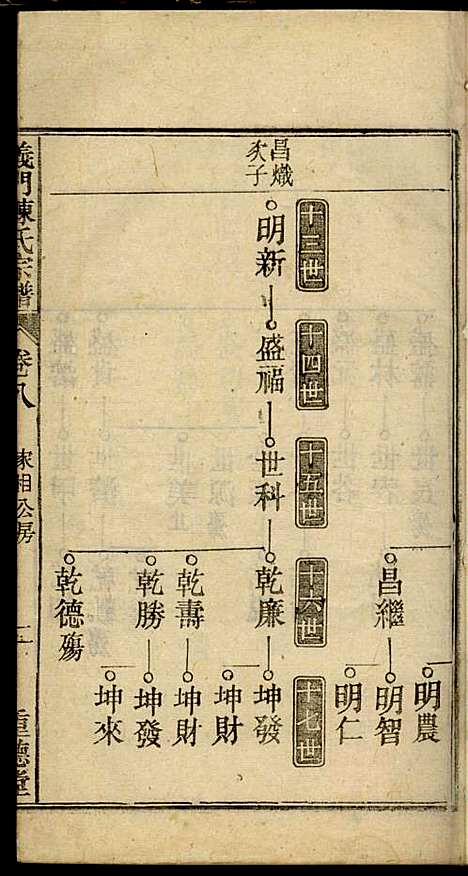 明農
昌繼
明智
明仁
十三世
十四世
十五世
十六世
十七世
昌熾
次子
明新
盛福
世科
乾廉
坤發
坤財
乾壽
坤財
乾勝
坤發
坤來
乾德殤
義門陳氏宗譜
卷八
家相公房
重德堂